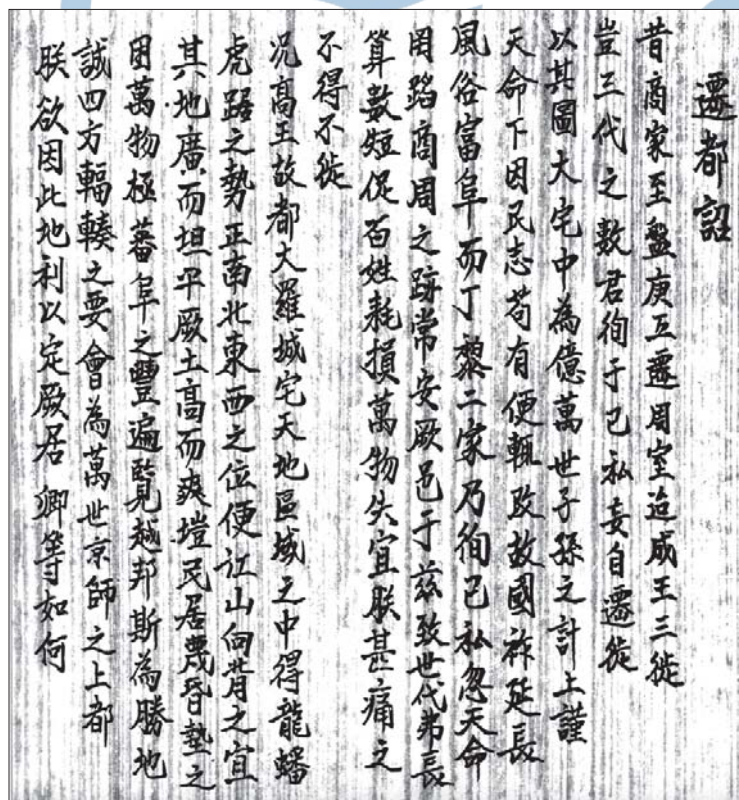 遷都詔
昔商家至盤庚五遷周室迨成王三徙
豈三代之數君徇于己私妄自遷徙
以其圖大宅中為億萬世子孫之計上謹
天命下因民志苟有便輒改故國祚延長
風俗富阜而丁黎二家乃徇己私忽天命
罔蹈商周之跡常安厥邑于茲致世代弗長
算數短促百姓耗損萬物失宜朕甚痛之
不得不徙
況高王故都大羅城宅天地區域之中得龍蟠
虎踞之勢正南北東西之位便江山向背之宜
其地廣而坦平厥土高而爽塏民居蔑昏墊之
困萬物極蕃阜之豐遍覽越邦斯為勝地
誠四方輻輳之要會為萬世京師之上都
朕欲因此地利以定厥居卿等如何